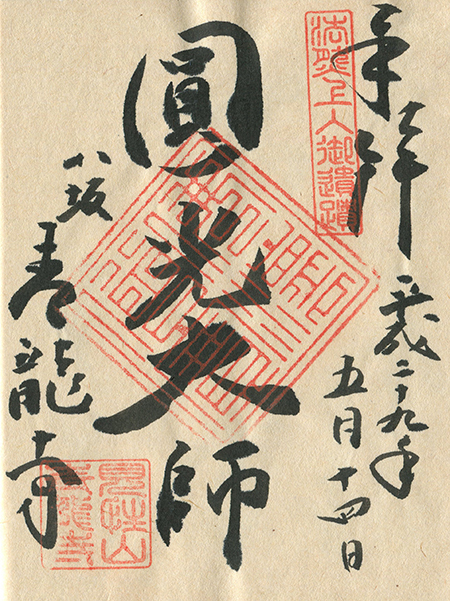 奉拝
法然上人御遺蹟
平成二十九年
五月十四日
圓光大師
八坂
青龍寺
見性山
青龍寺